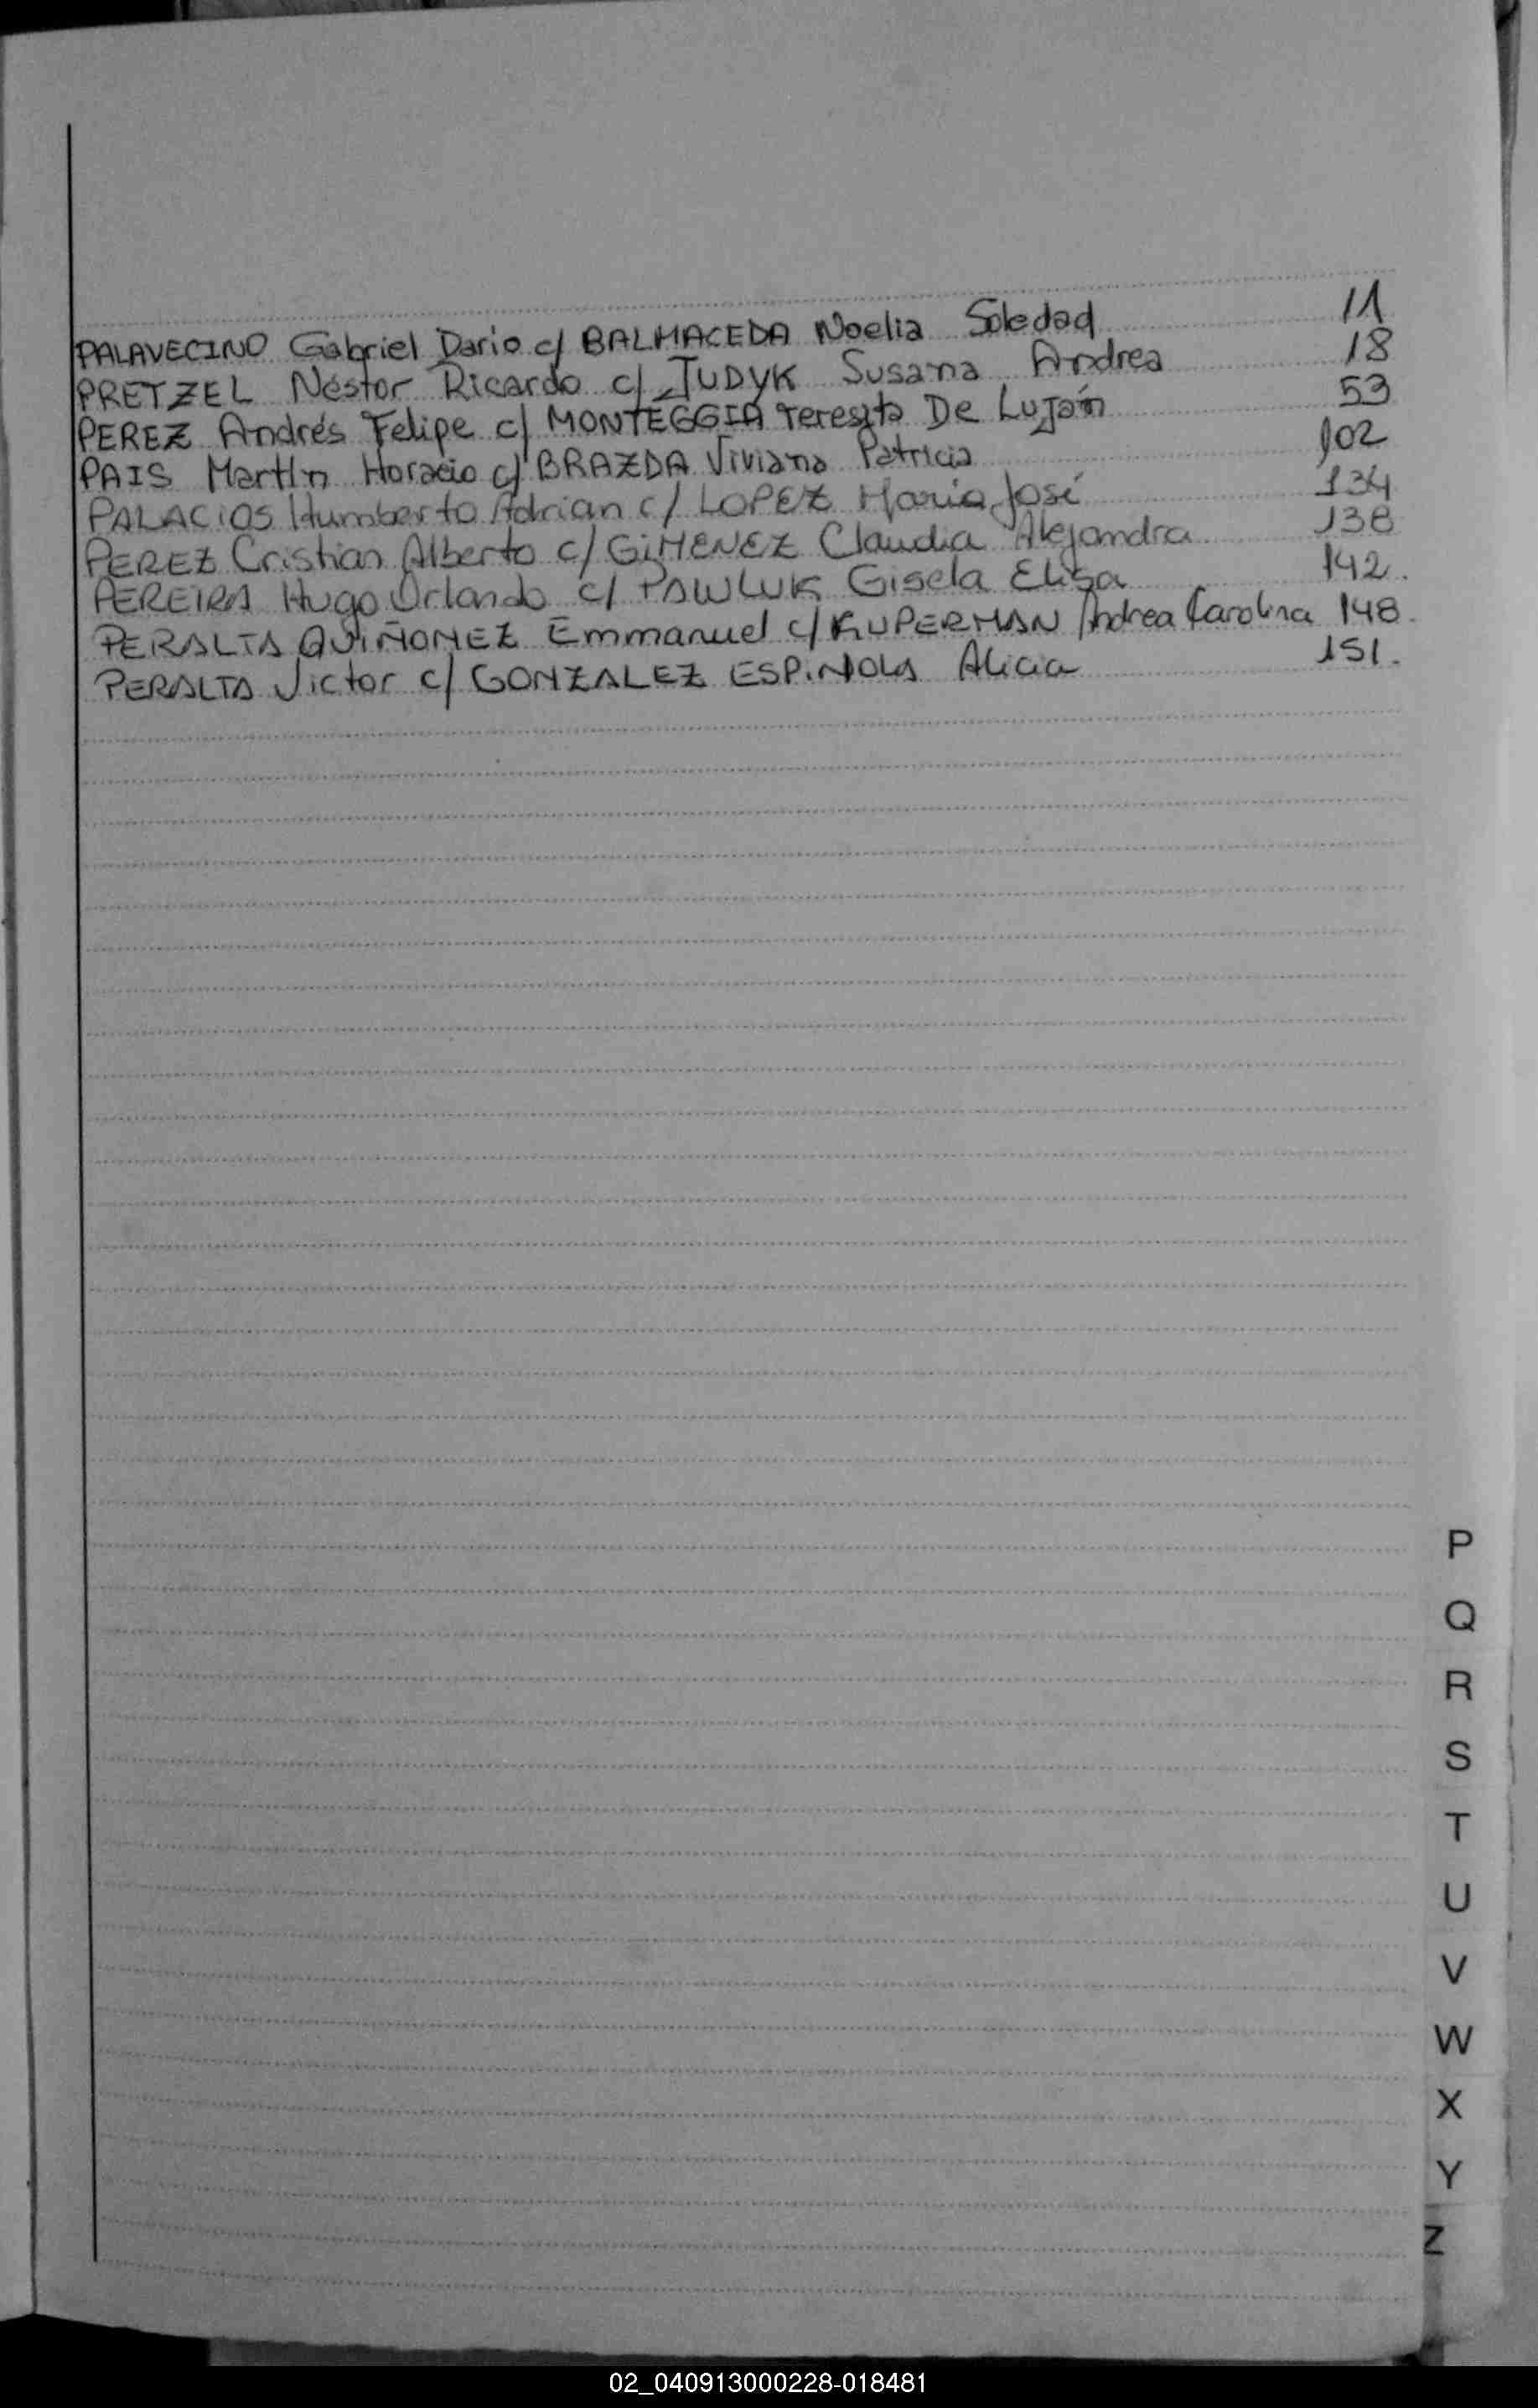 PALAVECINO Gabriel Dario c/ BALMACEDA Noelia Soledad 11
PRETZEL Néstor Ricardo c/ JUDYK Susana Andrea 18
PEREZ Andrés Felipe c/ MONTEGGIA Teresita De Luján 53
PAIS Martín Horacio c/ BRAZDA Viviana Patricia 102
PALACIOS Humberto Adrian c/ LOPEZ María José 134
PEREZ Cristian Alberto c/ GIMENEZ Claudia Alejandra 138
PEREIRA Hugo Orlando c/ PAWLUK Gisela Elisa 142.
PERALTA QUIÑONEZ Emmanuel c/ KUPERMAN Andrea Carolina 148.
PERALTA Victor c/ GONZALEZ ESPINOLA Alicia 151.
P
Q
R
S
T
U
V
W
X
Y
Z
02_040913000228-018481